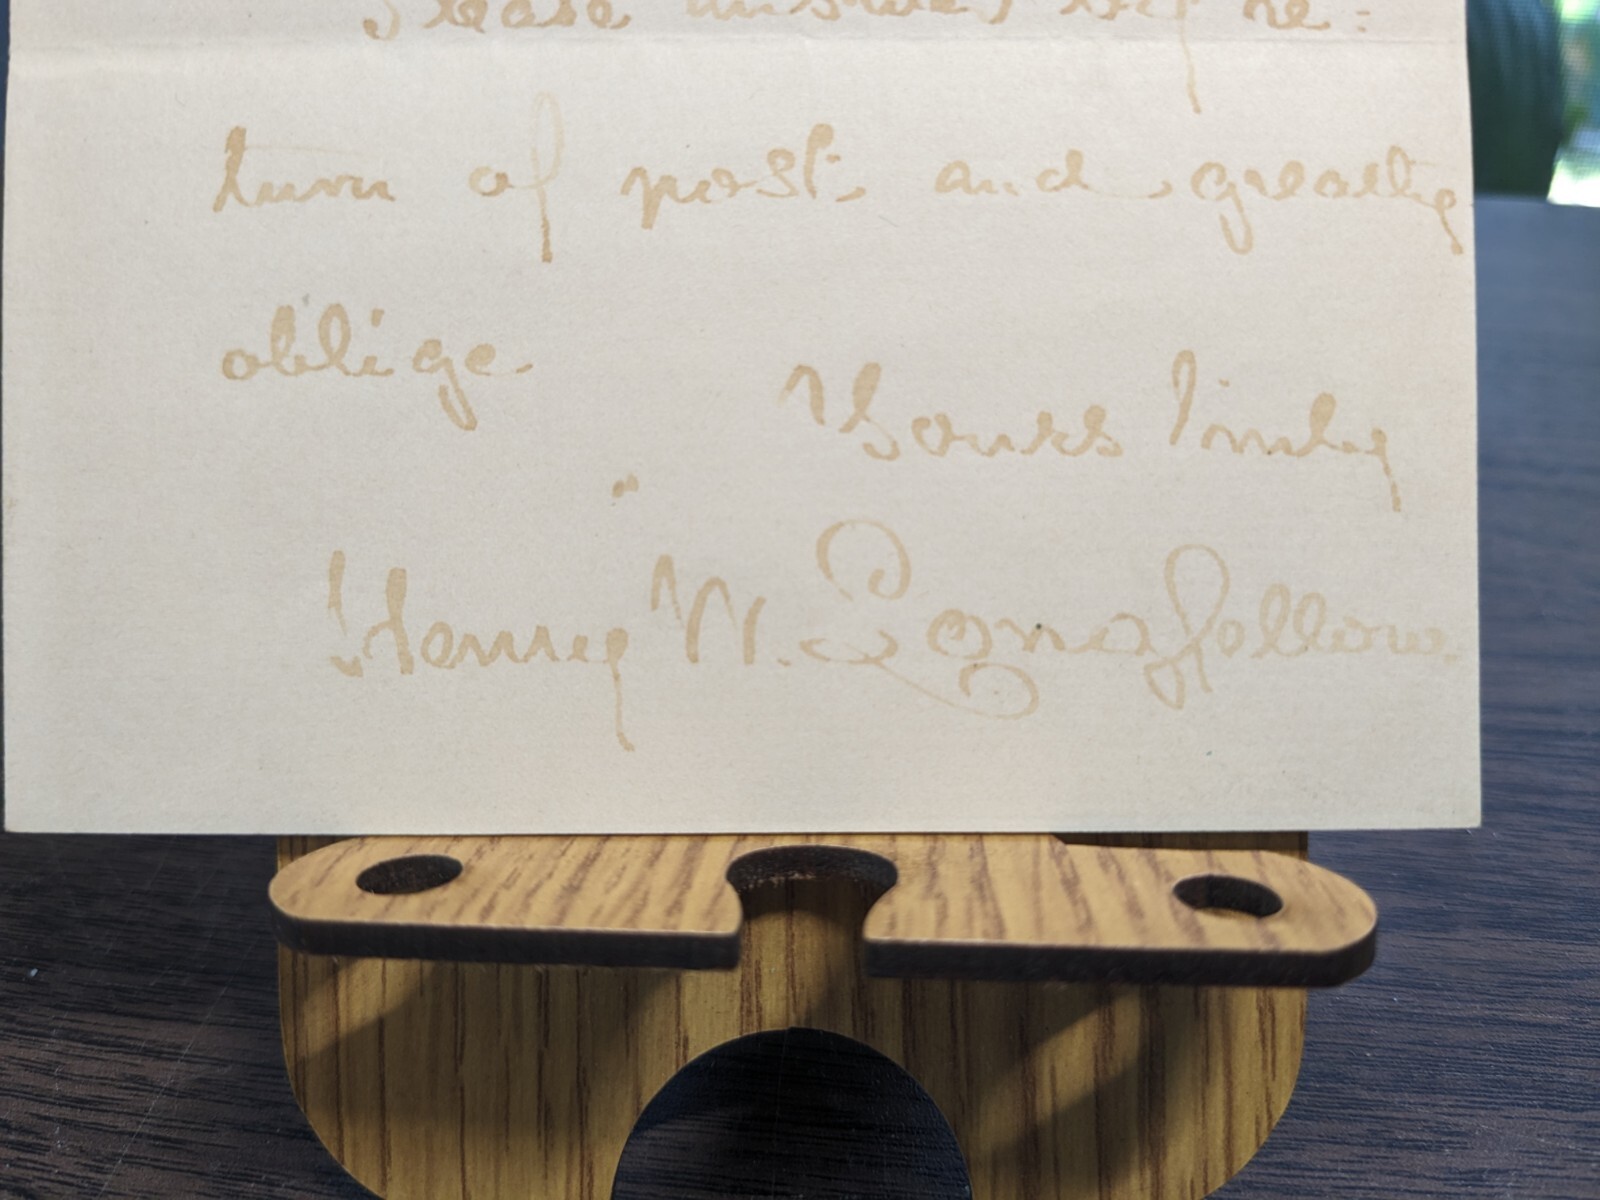 Please answer by re=
turn of post, and greatly
oblige.
Yours truly
Henry W. Longfellow.